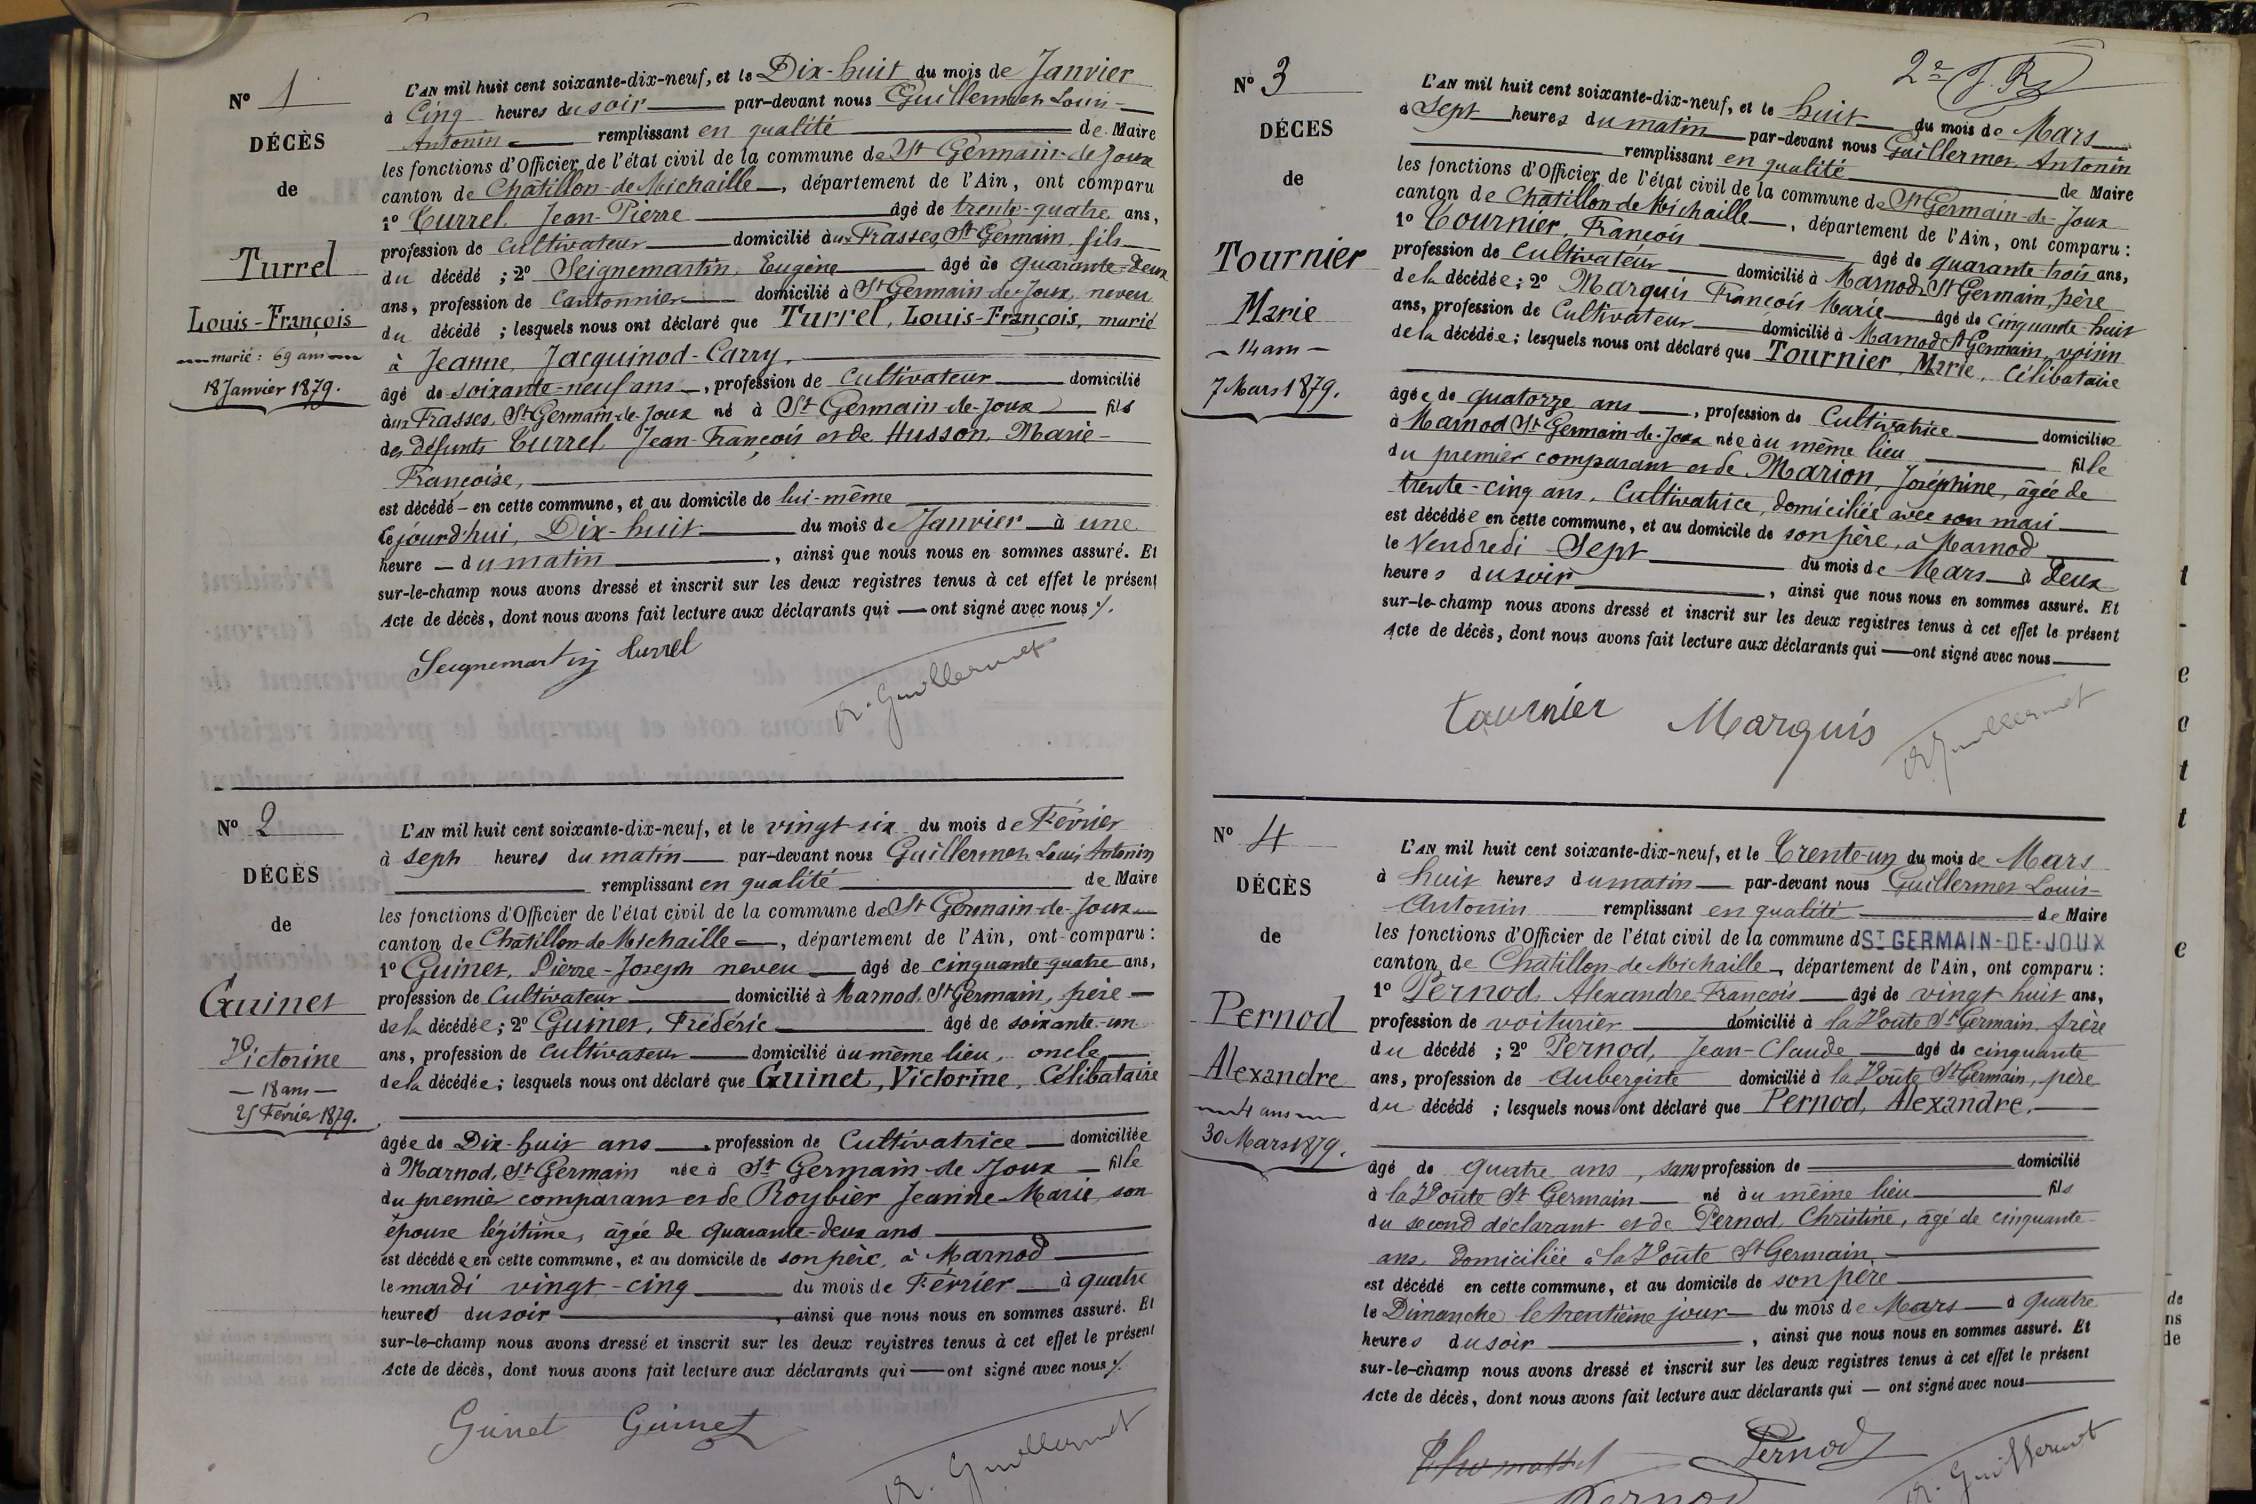 N° 1
DÉCÈS
de
Turrel
Louis-François
marié : 69 ans
18 Janvier 1879.
L'AN mil huit cent soixante-dix-neuf, et le Dix-huit du mois de Janvier
à Cinq heures du soir par-devant nous Guillermet Louis-
Antonin remplissant en qualité de Maire
les fonctions d'Officier de l'état civil de la commune de St Germain-de-Joux
canton de Châtillon-de-Michaille, département de l'Ain, ont comparu
1° Turrel, Jean-Pierre âgé de trente-quatre ans,
profession de Cultivateur domicilié aux Frasses, St Germain, fils
du décédé ; 2° Seignemartin, Eugène âgé de quarante-deux
ans, profession de Cantonnier domicilié à St Germain-de-Joux, neveu
du décédé ; lesquels nous ont déclaré que Turrel, Louis-François, marié
à Jeanne, Jacquinod-Carry,
âgé de soixante-neuf ans, profession de Cultivateur domicilié
aux Frasses, St Germain-de-Joux né à St Germain-de-Joux fils
des défunts Turrel, Jean-François et de Husson, Marie-
Françoise,
est décédé en cette commune, et au domicile de lui-même
cejourd'hui, Dix-huit du mois de Janvier à une
heure du matin, ainsi que nous nous en sommes assuré. Et
sur-le-champ nous avons dressé et inscrit sur les deux registres tenus à cet effet le présent
Acte de décès, dont nous avons fait lecture aux déclarants qui ont signé avec nous ./.
Seignemartin Turrel
A. Guillermet
N° 2
DÉCÈS
de
Guinet
Victorine
18 ans
25 Février 1879.
L'AN mil huit cent soixante-dix-neuf, et le vingt-six du mois de Février
à sept heures du matin par-devant nous Guillermet Louis Antonin
remplissant en qualité de Maire
les fonctions d'Officier de l'état civil de la commune de St Germain-de-Joux
canton de Châtillon-de-Michaille, département de l'Ain, ont comparu :
1° Guinet, Pierre-Joseph neveu âgé de cinquante-quatre ans,
profession de Cultivateur domicilié à Marnod, St Germain, père
de la décédée ; 2° Guinet, Frédéric âgé de soixante-un
ans, profession de Cultivateur domicilié au même lieu, oncle
de la décédée ; lesquels nous ont déclaré que Guinet, Victorine, Célibataire
âgée de Dix-huit ans, profession de Cultivatrice domiciliée
à Marnod, St Germain née à St Germain-de-Joux fille
du premier comparant et de Roybier Jeanne-Marie, son
épouse légitime, âgée de quarante-deux ans
est décédée en cette commune, et au domicile de son père, à Marnod
le mardi vingt-cinq du mois de Février à quatre
heures du soir, ainsi que nous nous en sommes assuré. Et
sur-le-champ nous avons dressé et inscrit sur les deux registres tenus à cet effet le présent
Acte de décès, dont nous avons fait lecture aux déclarants qui ont signé avec nous ./.
Guinet Guinet
A. Guillermet
2e
N° 3
DÉCES
de
Tournier
Marie
14 ans
7 Mars 1879.
L'AN mil huit cent soixante-dix-neuf, et le huit du mois de Mars
à Sept heures du matin par-devant nous Guillermet Antonin
remplissant en qualité de Maire
les fonctions d'Officier de l'état civil de la commune de St Germain-de-Joux
canton de Châtillon de Michaille, département de l'Ain, ont comparu :
1° Tournier, François âgé de quarante-trois ans,
profession de Cultivateur domicilié à Marnod, St Germain, père
de la décédée ; 2° Marquis François Marie âgé de cinquante-huit
ans, profession de Cultivateur domicilié à Marnod St Germain, voisin
de la décédée ; lesquels nous ont déclaré que Tournier, Marie, Célibataire
âgée de quatorze ans, profession de Cultivatrice domiciliée
à Marnod St Germain-de-Joux née au même lieu fille
du premier comparant et de Marion, Joséphine, âgée de
trente-cinq ans, Cultivatrice, domiciliée avec son mari
est décédée en cette commune, et au domicile de son père, à Marnod
le Vendredi Sept du mois de Mars à Deux
heures du soir, ainsi que nous nous en sommes assuré. Et
sur-le-champ nous avons dressé et inscrit sur les deux registres tenus à cet effet le présent
Acte de décès, dont nous avons fait lecture aux déclarants qui ont signé avec nous
Tournier Marquis A. Guillermet
N° 4
DÉCÈS
de
Pernod
Alexandre
4 ans
30 Mars 1879.
L'AN mil huit cent soixante-dix-neuf, et le Trente-un du mois de Mars
à huit heures du matin par-devant nous Guillermet Louis-
Antonin remplissant en qualité de Maire
les fonctions d'Officier de l'état civil de la commune d ST GERMAIN-DE-JOUX
canton de Châtillon-de-Michaille, département de l'Ain, ont comparu :
1° Pernod, Alexandre-François âgé de vingt huit ans,
profession de voiturier domicilié à la Voûte St Germain, frère
du décédé ; 2° Pernod, Jean-Claude âgé de cinquante
ans, profession de Aubergiste domicilié à la Voûte St Germain, père
du décédé ; lesquels nous ont déclaré que Pernod, Alexandre,
âgé de quatre ans, sans profession de domicilié
à la Voûte St Germain né au même lieu fils
du second déclarant et de Pernod, Christine, âgé de cinquante
ans, Domiciliée à la Voûte St Germain
est décédé en cette commune, et au domicile de son père
le Dimanche le trentième jour du mois de Mars à quatre
heures du soir, ainsi que nous nous en sommes assuré. Et
sur-le-champ nous avons dressé et inscrit sur les deux registres tenus à cet effet le présent
Acte de décès, dont nous avons fait lecture aux déclarants qui ont signé avec nous
Pernod
Pernod A. Guillermet